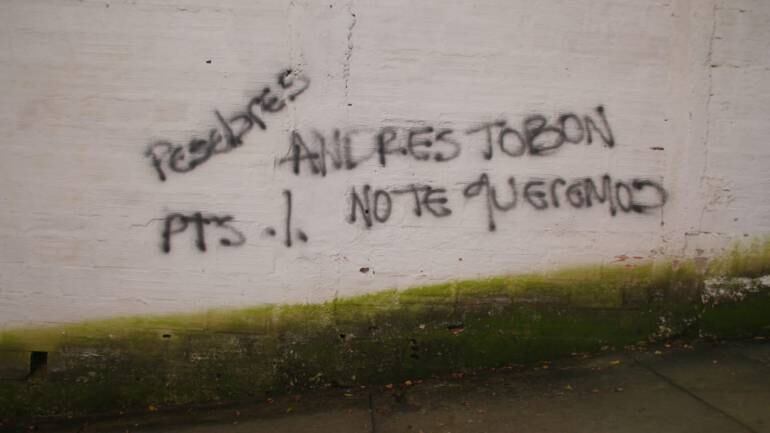 Pesebres
ANDRES TOBON
PTS ./. NO TE QUEREMOS